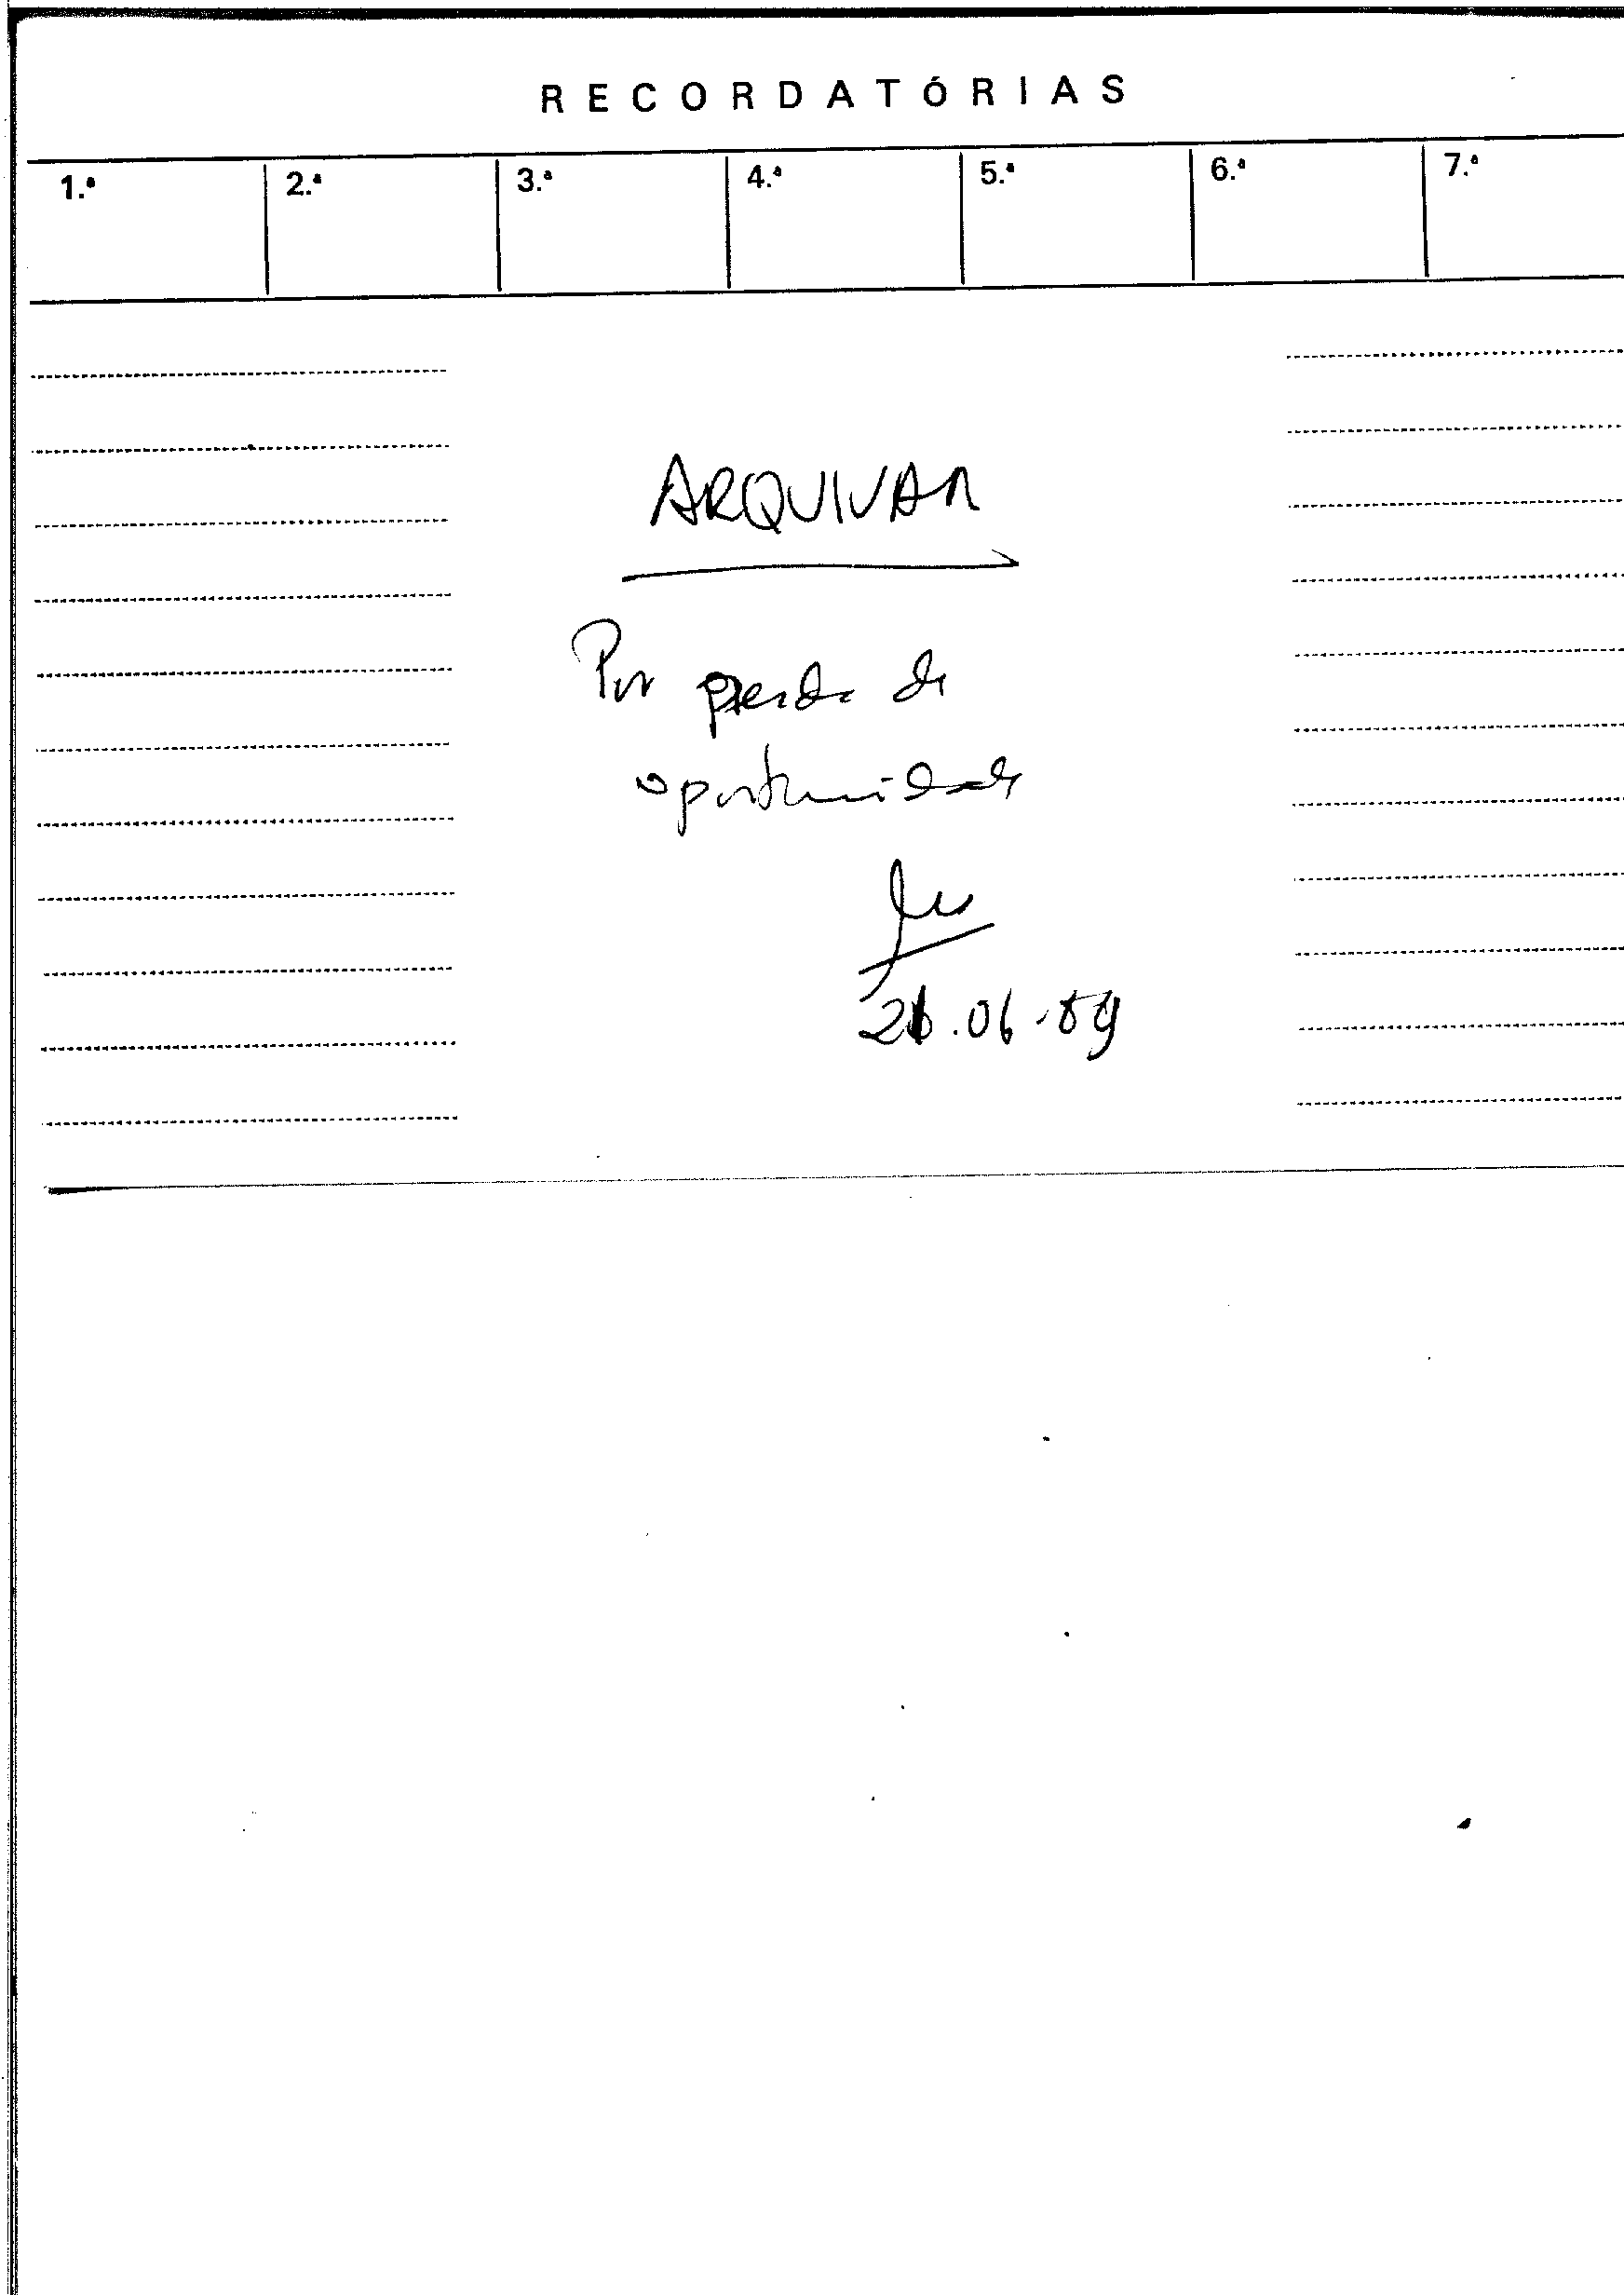 RECORDATÓRIAS
1.ª 2.ª 3.ª 4.ª 5.ª 6.ª 7.ª
ARQUIVAR
Por perda de
oportunidade
.06.89